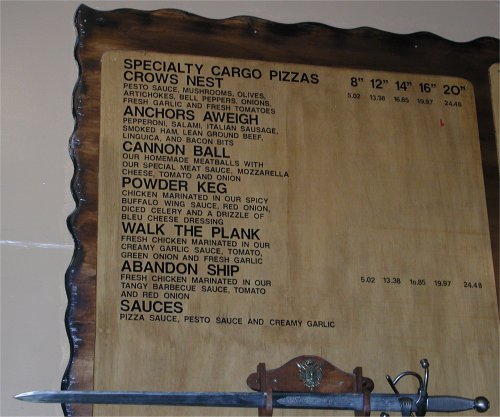 SPECIALTY CARGO PIZZAS 8" 12" 14" 16" 20"
CROWS NEST 5.02 13.38 16.85 19.97 24.48
PESTO SAUCE, MUSHROOMS, OLIVES,
ARTICHOKES, BELL PEPPERS, ONIONS,
FRESH GARLIC AND FRESH TOMATOES
ANCHORS AWEIGH
PEPPERONI, SALAMI, ITALIAN SAUSAGE,
SMOKED HAM, LEAN GROUND BEEF,
LINGUICA, AND BACON BITS
CANNON BALL
OUR HOMEMADE MEATBALLS WITH
OUR SPECIAL MEAT SAUCE, MOZZARELLA
CHEESE, TOMATO AND ONION
POWDER KEG
CHICKEN MARINATED IN OUR SPICY
BUFFALO WING SAUCE, RED ONION,
DICED CELERY AND A DRIZZLE OF
BLEU CHEESE DRESSING
WALK THE PLANK
FRESH CHICKEN MARINATED IN OUR
CREAMY GARLIC SAUCE, TOMATO,
GREEN ONION AND FRESH GARLIC
ABANDON SHIP 5.02 13.38 16.85 19.97 24.48
FRESH CHICKEN MARINATED IN OUR
TANGY BARBECUE SAUCE, TOMATO
AND RED ONION
SAUCES
PIZZA SAUCE, PESTO SAUCE AND CREAMY GARLIC